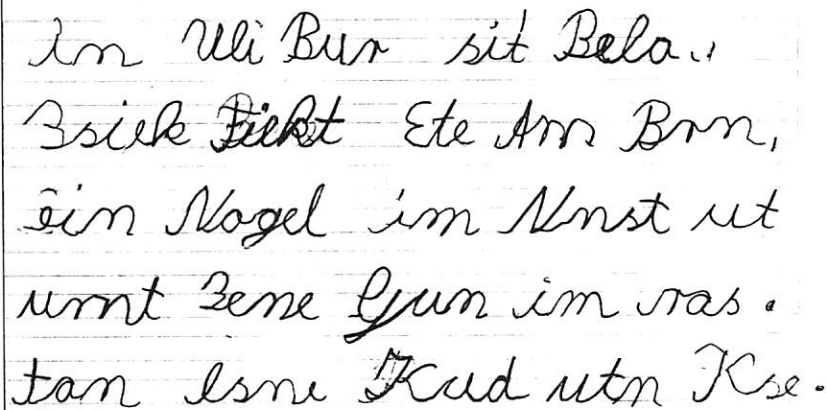 in Uli Bur sit Bela.,
Bsiek Fiekt Ete Am Brn,
ein Nogel im Nnst ut
umt Bene Gun im ras.
tan esne Kud utn Kse.